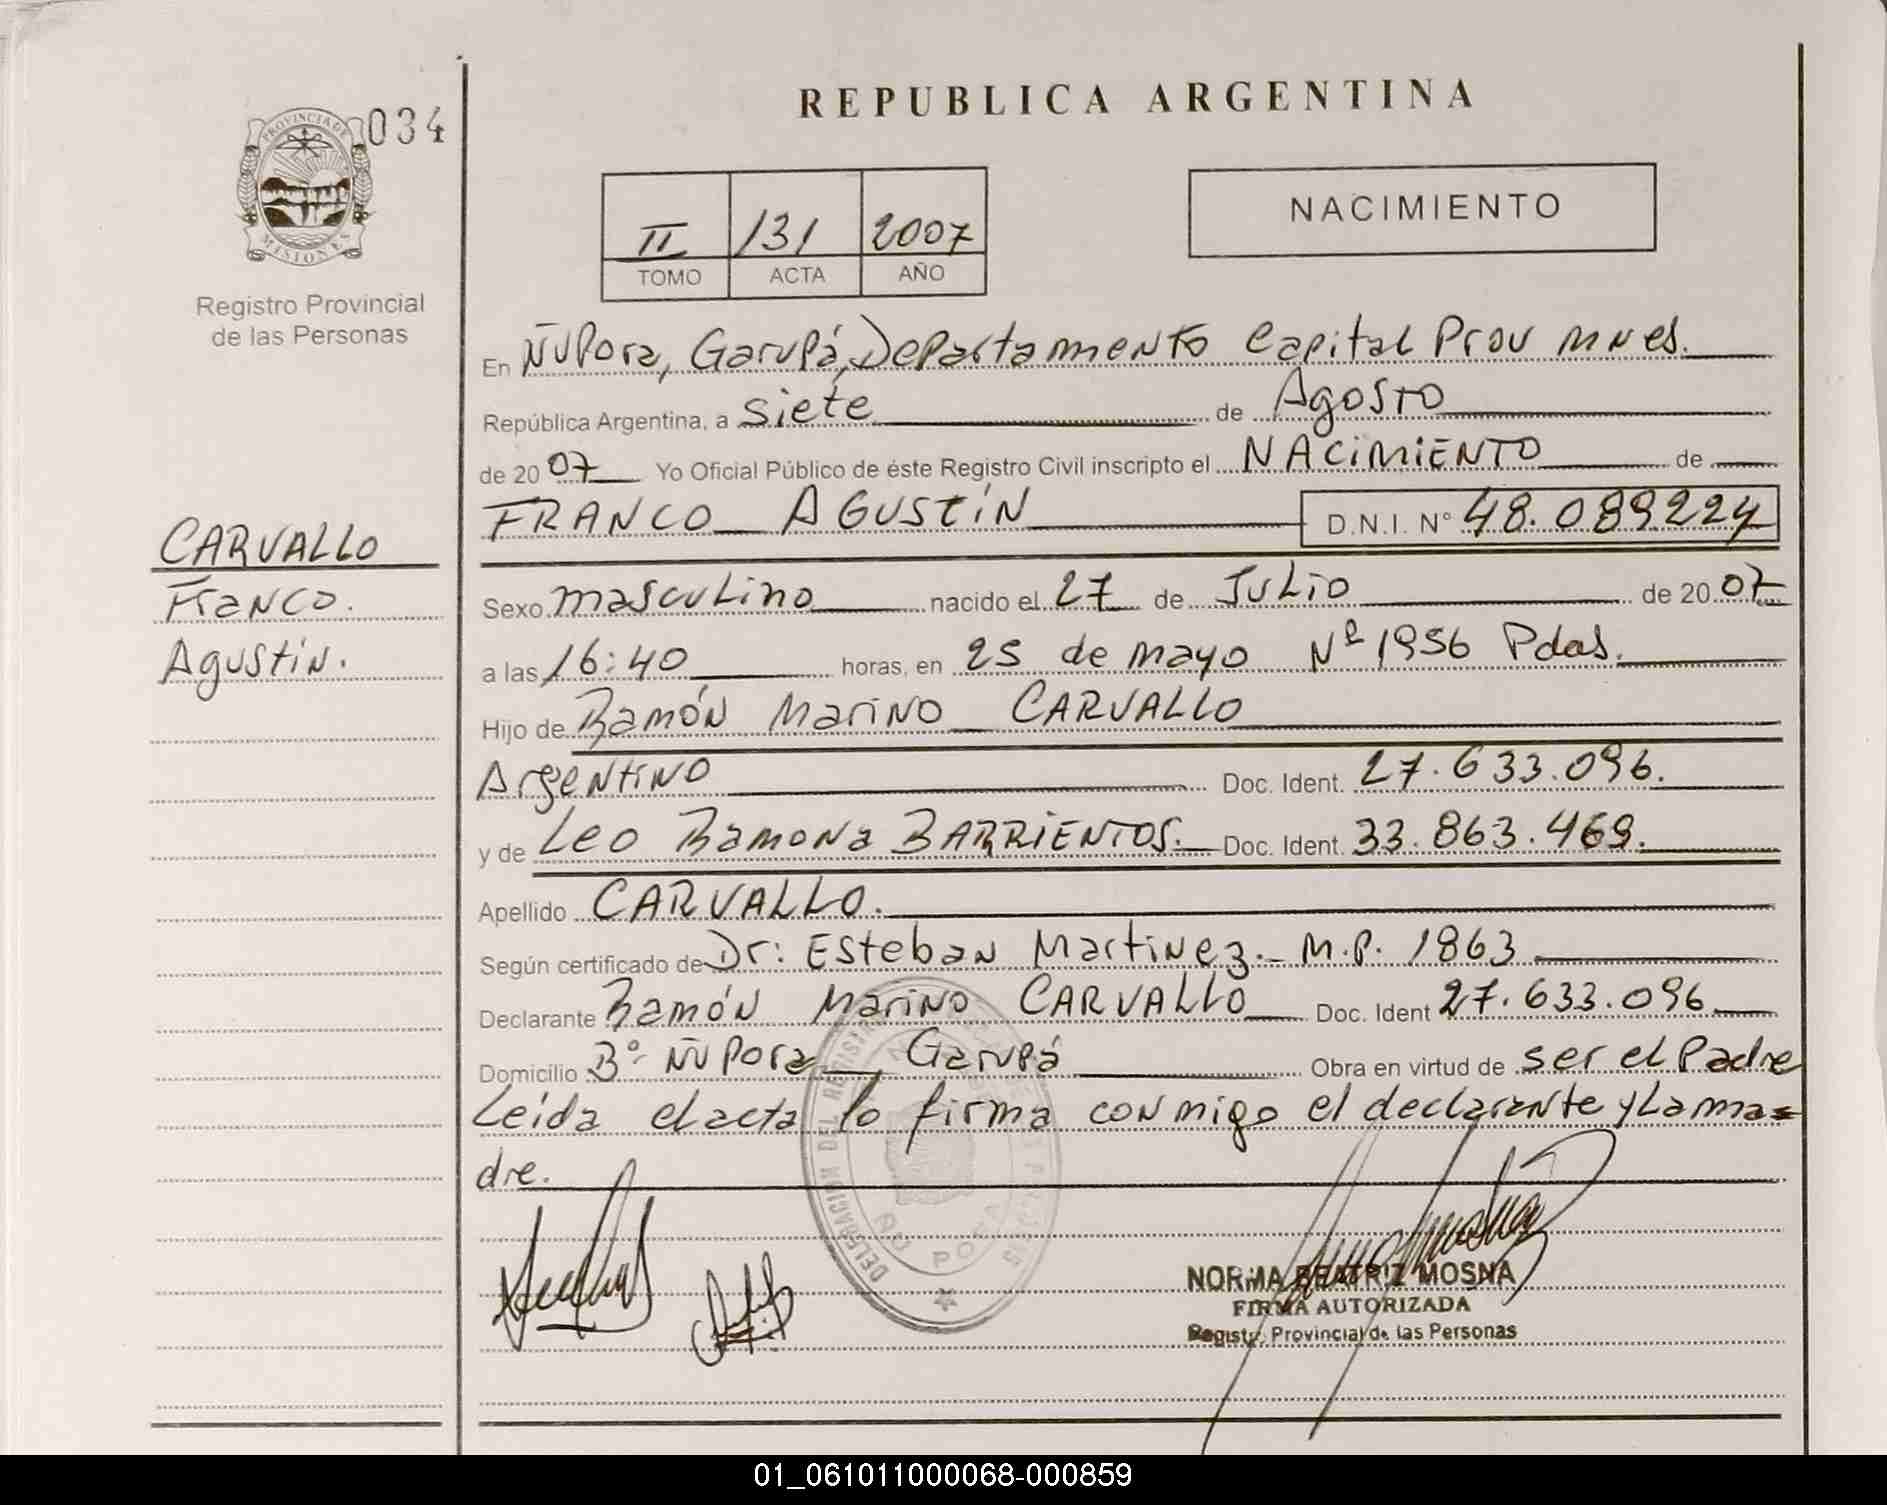 REPUBLICA ARGENTINA
PROVINCIA DE
MISIONES
034
Registro Provincial
de las Personas
II 131 2007
TOMO ACTA AÑO
NACIMIENTO
En Ñu Pora, Garupá, Departamento Capital Prov Mnes.
República Argentina, a siete de Agosto
de 2007 Yo Oficial Público de éste Registro Civil inscripto el NACIMIENTO de
FRANCO AGUSTÍN D.N.I. Nº 48.089224
CARVALLO
Franco.
Agustín.
Sexo masculino nacido el 27 de Julio de 2007
a las 16:40 horas, en 25 de mayo Nº 1956 Pdas.
Hijo de Ramón Marino CARVALLO
Argentino Doc. Ident. 27.633.096.
y de Leo Ramona BARRIENTOS. Doc. Ident. 33.863.469.
Apellido CARVALLO.
Según certificado de Dr: Esteban Martinez. M.P. 1863
Declarante Ramón Marino CARVALLO Doc. Ident 27.633.096
Domicilio Bº Ñu Pora Garupá Obra en virtud de ser el Padre
Leída el acta lo firma conmigo el declarante y La ma=
dre.
DELEGACION DEL REGISTRO
ÑU PORA
NORMA BEATRIZ MOSNA
FIRMA AUTORIZADA
Registr. Provincial de las Personas
01_061011000068-000859